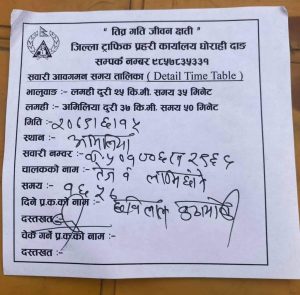 " तिव्र गति जीवन क्षती "
जिल्ला ट्राफिक प्रहरी कार्यालय घोराही दाङ
सम्पर्क नम्बर ९८५७८३५३३१
सवारी आवगमन समय तालिका ( Detail Time Table )
भालुवाङः- लमही दुरी २५ कि.मी. समय ३५ मिनेट
लमही:- अमिलिया दुरी ३७ कि.मी. समय ५० मिनेट
मिति:- २०७९।६।१५
स्थान :- अमलिया
सवारी नम्बर :-
चालकको नाम:- तेज व
समय :- १६:५८
दिने प्र.क.को नाम:- छवि लाल
दस्तखत:-
चेकै गर्ने प्र.क.को नाम :-
दस्तखत :-